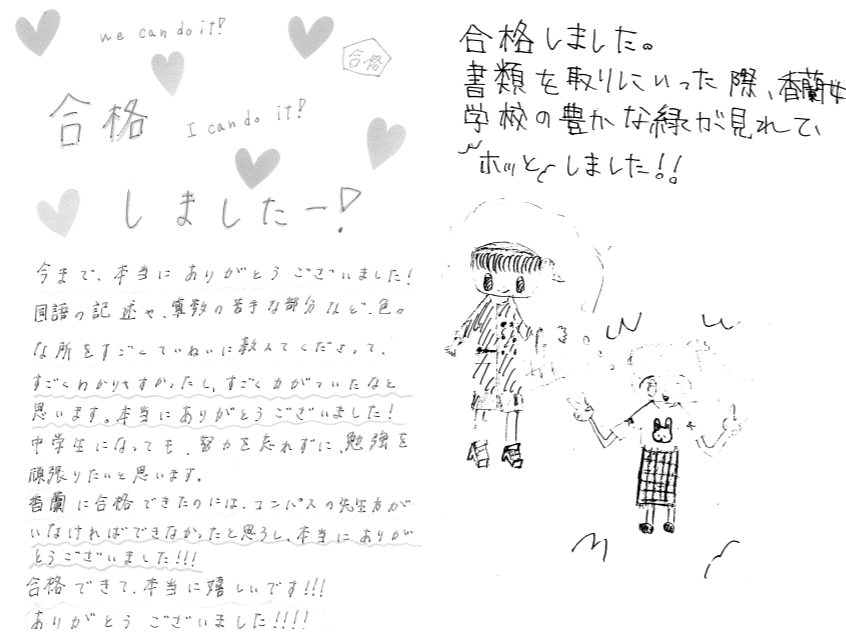 we can do it!
合格
合格
I can do it!
しましたー!
今まで、本当にありがとうございました!
国語の記述や、算数の苦手な部分など、色。
な所をすごくていねいに教えてくださって、
すごくわかりやすかったし、すごく力がついたなと
思います。本当にありがとうございました!
中学生になっても、努力を忘れずに、勉強を
頑張りたいと思います。
香蘭に合格できたのには、コンパスの先生方が
いなければできなかったと思うし、本当にありが
とうございました!!!
合格できて、本当に嬉しいです!!!
ありがとうございました!!!!
合格しました。
書類を取りにいった際、香蘭女
学校の豊かな緑が見れて、
ホッとしました!!